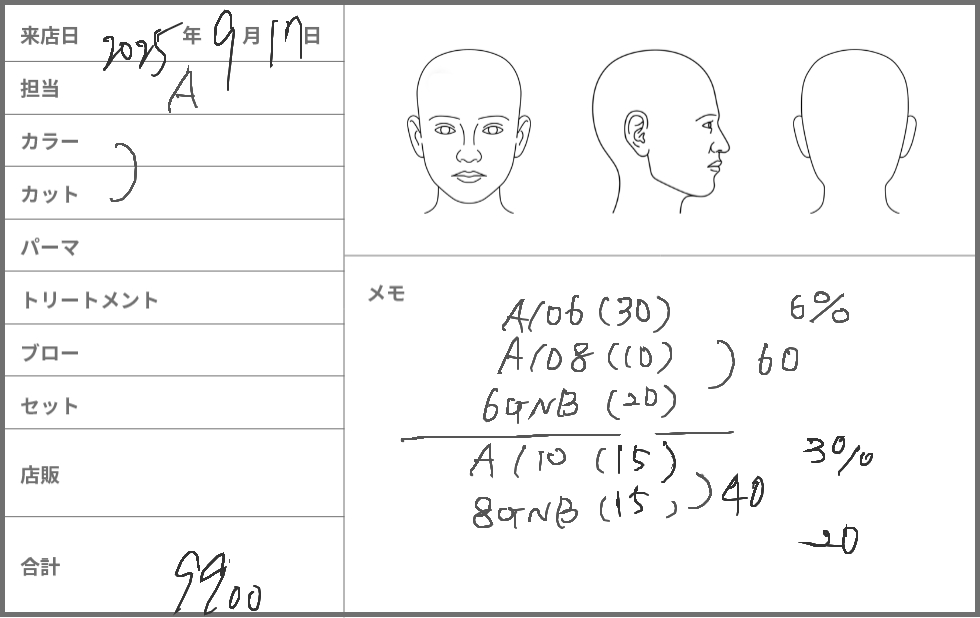 来店日 2025年9月17日
担当 A
カラー
カット
パーマ
トリートメント
ブロー
セット
店販
合計 9900
メモ
A/06 (30) 6%
A/08 (10) ) 60
6GNB (20)
A/10 (15) 3%
8GNB (15) ) 40
20